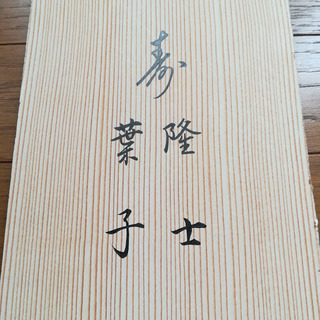 寿
隆士
葉子